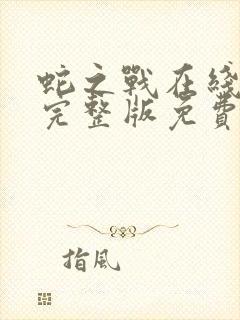 蛇之戰在綫
完整版免費
指風